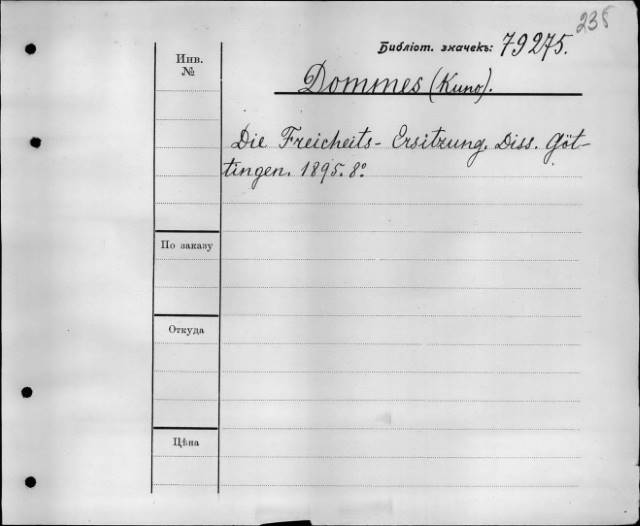 235
Библіот. значекъ: 79275.
Инв.
№
Dommes (Kuno).
Die Freicheits- Ersitzung. Diss. Göt-
tingen. 1895. 8°.
По заказу
Откуда
Цѣна